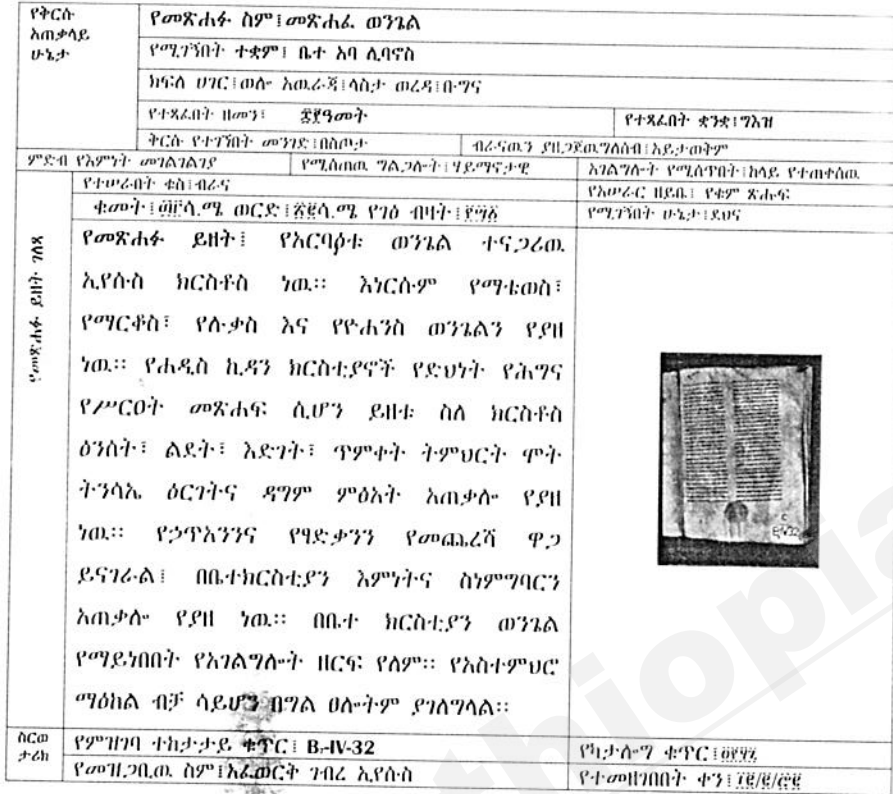 የቅርሱ አጠቃላይ ሁኔታ
የመጽሐፉ ስም፤መጽሐፈ ወንጌል
የሚገኝበት ተቋም፤ ቤተ አባ ሊባኖስ
ክፍለ ሀገር፤ወሎ አዉራጃ፤ላስታ ወረዳ፤ቡግና
የተጻፈበት ዘመን፤ ዓመት
የተጻፈበት ቋንቋ፤ግእዝ
ቅርሱ የተገኘበት መንገድ፤በስጦታ
ብራናዉን ያዘጋጀዉ ግለሰብ፤አይታወቅም
ምድብ የእምነት መገልገልገያ
የሚሰጠዉ ግልጋሎት፤ሃይማኖታዊ
አገልግሎት የሚሰጥበት፤ከላይ የተጠቀሰዉ
የተሠራበት ቁስ፤ብራና
የአሠራር ዘይቤ፤ የቁም ጽሑፍ
ቁመት፤ ሳ.ሜ ወርድ፤ ሳ.ሜ የገፅ ብዛት፤
የሚገኝበት ሁኔታ፤ደህና
የመጽሐፉ ይዘት ገለጻ
የመጽሐፉ ይዘት፤ የአርባዕቱ ወንጌል ተናጋሪዉ
ኢየሱስ ክርስቶስ ነዉ፡፡ እነርሱም የማቴወስ፣
የማርቆስ፣ የሉቃስ እና የዮሐንስ ወንጌልን የያዘ
ነዉ፡፡ የሐዲስ ኪዳን ክርስቲያኖች የድህነት የሕግና
የሥርዐት መጽሐፍ ሲሆን ይዘቱ ስለ ክርስቶስ
ዕንስት፣ ልደት፣ እድገት፣ ጥምቀት ትምህርት ሞት
ትንሳኤ ዕርገትና ዳግም ምዕአት አጠቃሎ የያዘ
ነዉ፡፡ የኃጥአንንና የፃድቃንን የመጨረሻ ዋጋ
ይናገራል፤ በቤተክርስቲያን እምነትና ስነምግባርን
አጠቃሎ የያዘ ነዉ፡፡ በቤተ ክርስቲያን ወንጌል
የማይነበበት የአገልግሎት ዘርፍ የለም፡፡ የአስተምህሮ
ማዕከል ብቻ ሳይሆን በግል ፀሎትም ያገለግላል፡፡
ስርወ ታሪክ
የምዝገባ ተከታታይ ቁጥር፤ B-IV-32
የካታሎግ ቁጥር፤
የመዝጋቢዉ ስም፤አፈወርቅ ገብረ ኢየሱስ
የተመዘገበበት ቀን፤